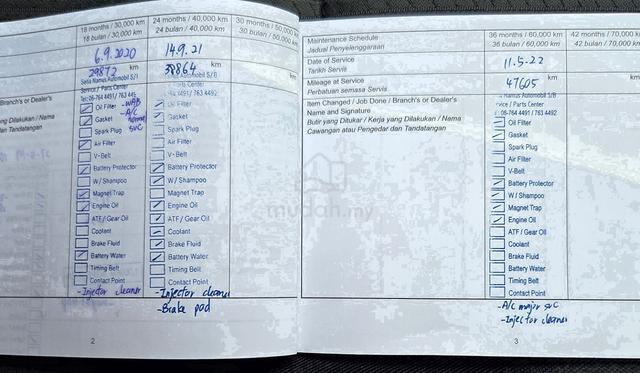 18 months / 30,000 km
18 bulan / 30,000 km
24 months / 40,000 km
24 bulan / 40,000 km
30 months / 50,000 km
30 bulan / 50,000 km
6.9.2020
14.9.21
29872 km
38864 km
km
Setia Namus Automobil S/B
Service / Parts Center
Tel:06-764 4491 / 763 445
Branch's or Dealer's
yang Dilakukan / Nama
dan Tandatangan
Oil Filter
Gasket
Spark Plug
Air Filter
V-Belt
Battery Protector
W / Shampoo
Magnet Trap
Engine Oil
ATF / Gear Oil
Coolant
Brake Fluid
Battery Water
Timing Belt
Contact Point
-A/C
SVC
-Injector cleaner
Oil Filter
Gasket
Spark Plug
Air Filter
V-Belt
Battery Protector
W / Shampoo
Magnet Trap
Engine Oil
ATF / Gear Oil
Coolant
Brake Fluid
Battery Water
Timing Belt
Contact Point
-Injector cleaner
-Brake pad
2
Maintenance Schedule
Jadual Penyelenggaraan
36 months / 60,000 km
36 bulan / 60,000 km
42 months / 70,000
42 bulan / 70,000
Date of Service
Tarikh Servis
11.5.22
Mileage at Service
Perbatuan semasa Servis
47605 km
Item Changed / Job Done / Branch's or Dealer's
Name and Signature
Butir yang Ditukar / Kerja yang Dilakukan / Nama
Cawangan atau Pengedar dan Tandatangan
Namus Automobil S/B
rvice / Parts Center
06-764 4491 / 763 4492
Oil Filter
Gasket
Spark Plug
Air Filter
V-Belt
Battery Protector
W / Shampoo
Magnet Trap
Engine Oil
ATF / Gear Oil
Coolant
Brake Fluid
Battery Water
Timing Belt
Contact Point
-A/C major svc
-Injector cleaner
3
mudah.my